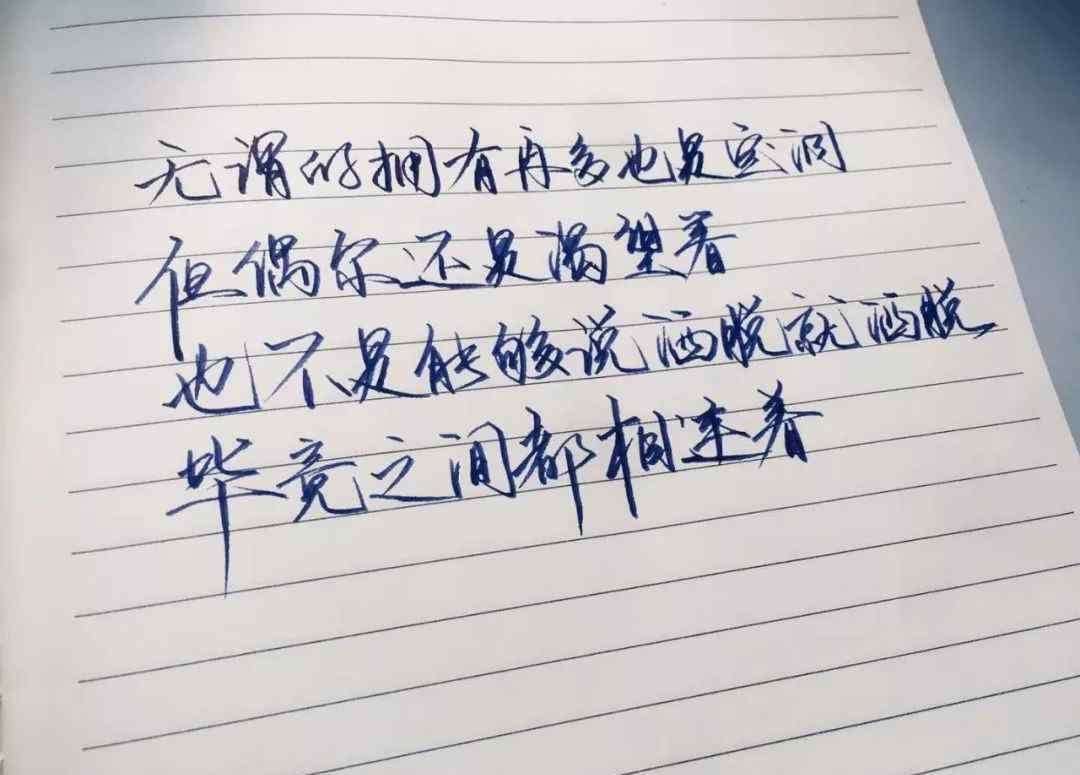 无谓的拥有再多也是空洞
但偶尔还是渴望着
也不是能够说洒脱就洒脱
毕竟之间都相连着